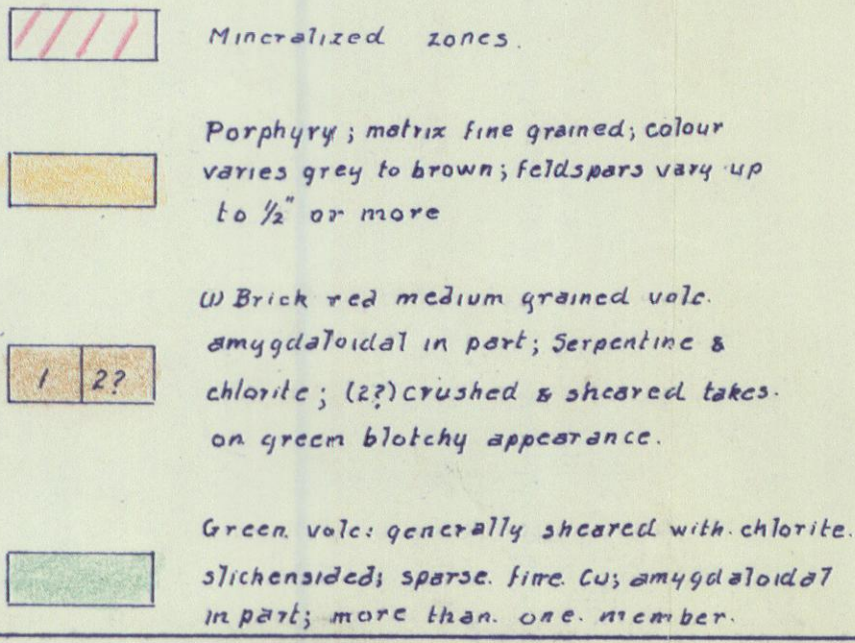 Mineralized zones.
Porphyry; matrix fine grained; colour
varies grey to brown; feldspars vary up
to 1/2" or more
(1) Brick red medium grained volc.
amygdaloidal in part; Serpentine &
1 2? chlorite; (2?) crushed & sheared takes.
on green blotchy appearance.
Green. volc: generally sheared with. chlorite.
slickensided; sparse. fine. Cu; amygdaloidal
in part; more than. one. member.